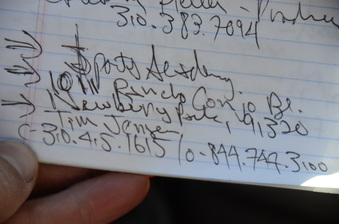 310.383.7094
Sports Academy.
1011 Rancho Conejo Bl.
Newbury Park, 91320
Tim Jensen
C-310.415.1615 / O-844.744.3100